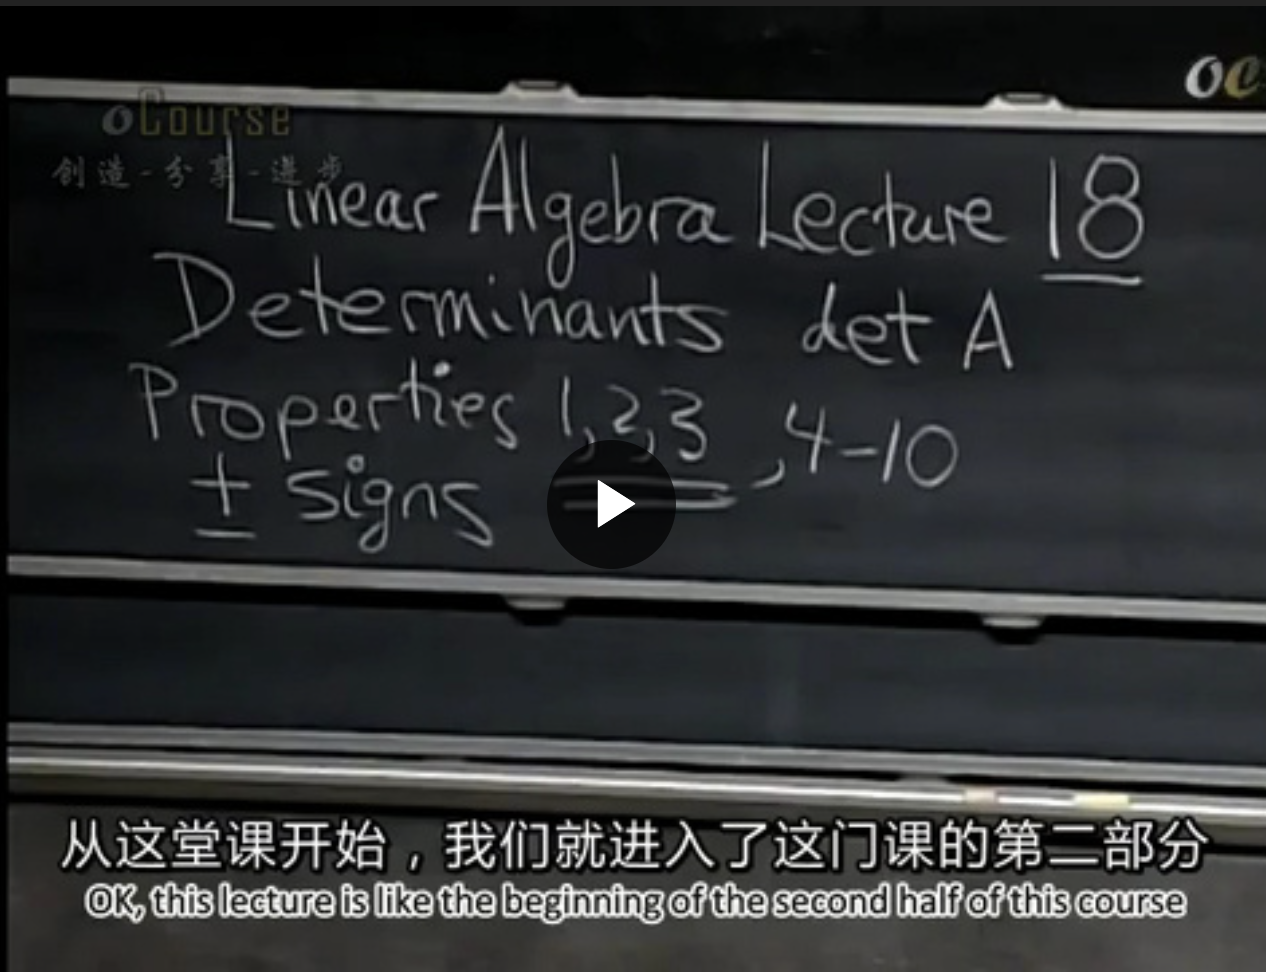 oc
oCourse
创造-分享-进步
Linear Algebra Lecture 18
Determinants det A
Properties 1,2,3,4-10
± signs
从这堂课开始，我们就进入了这门课的第二部分
OK, this lecture is like the beginning of the second half of this course